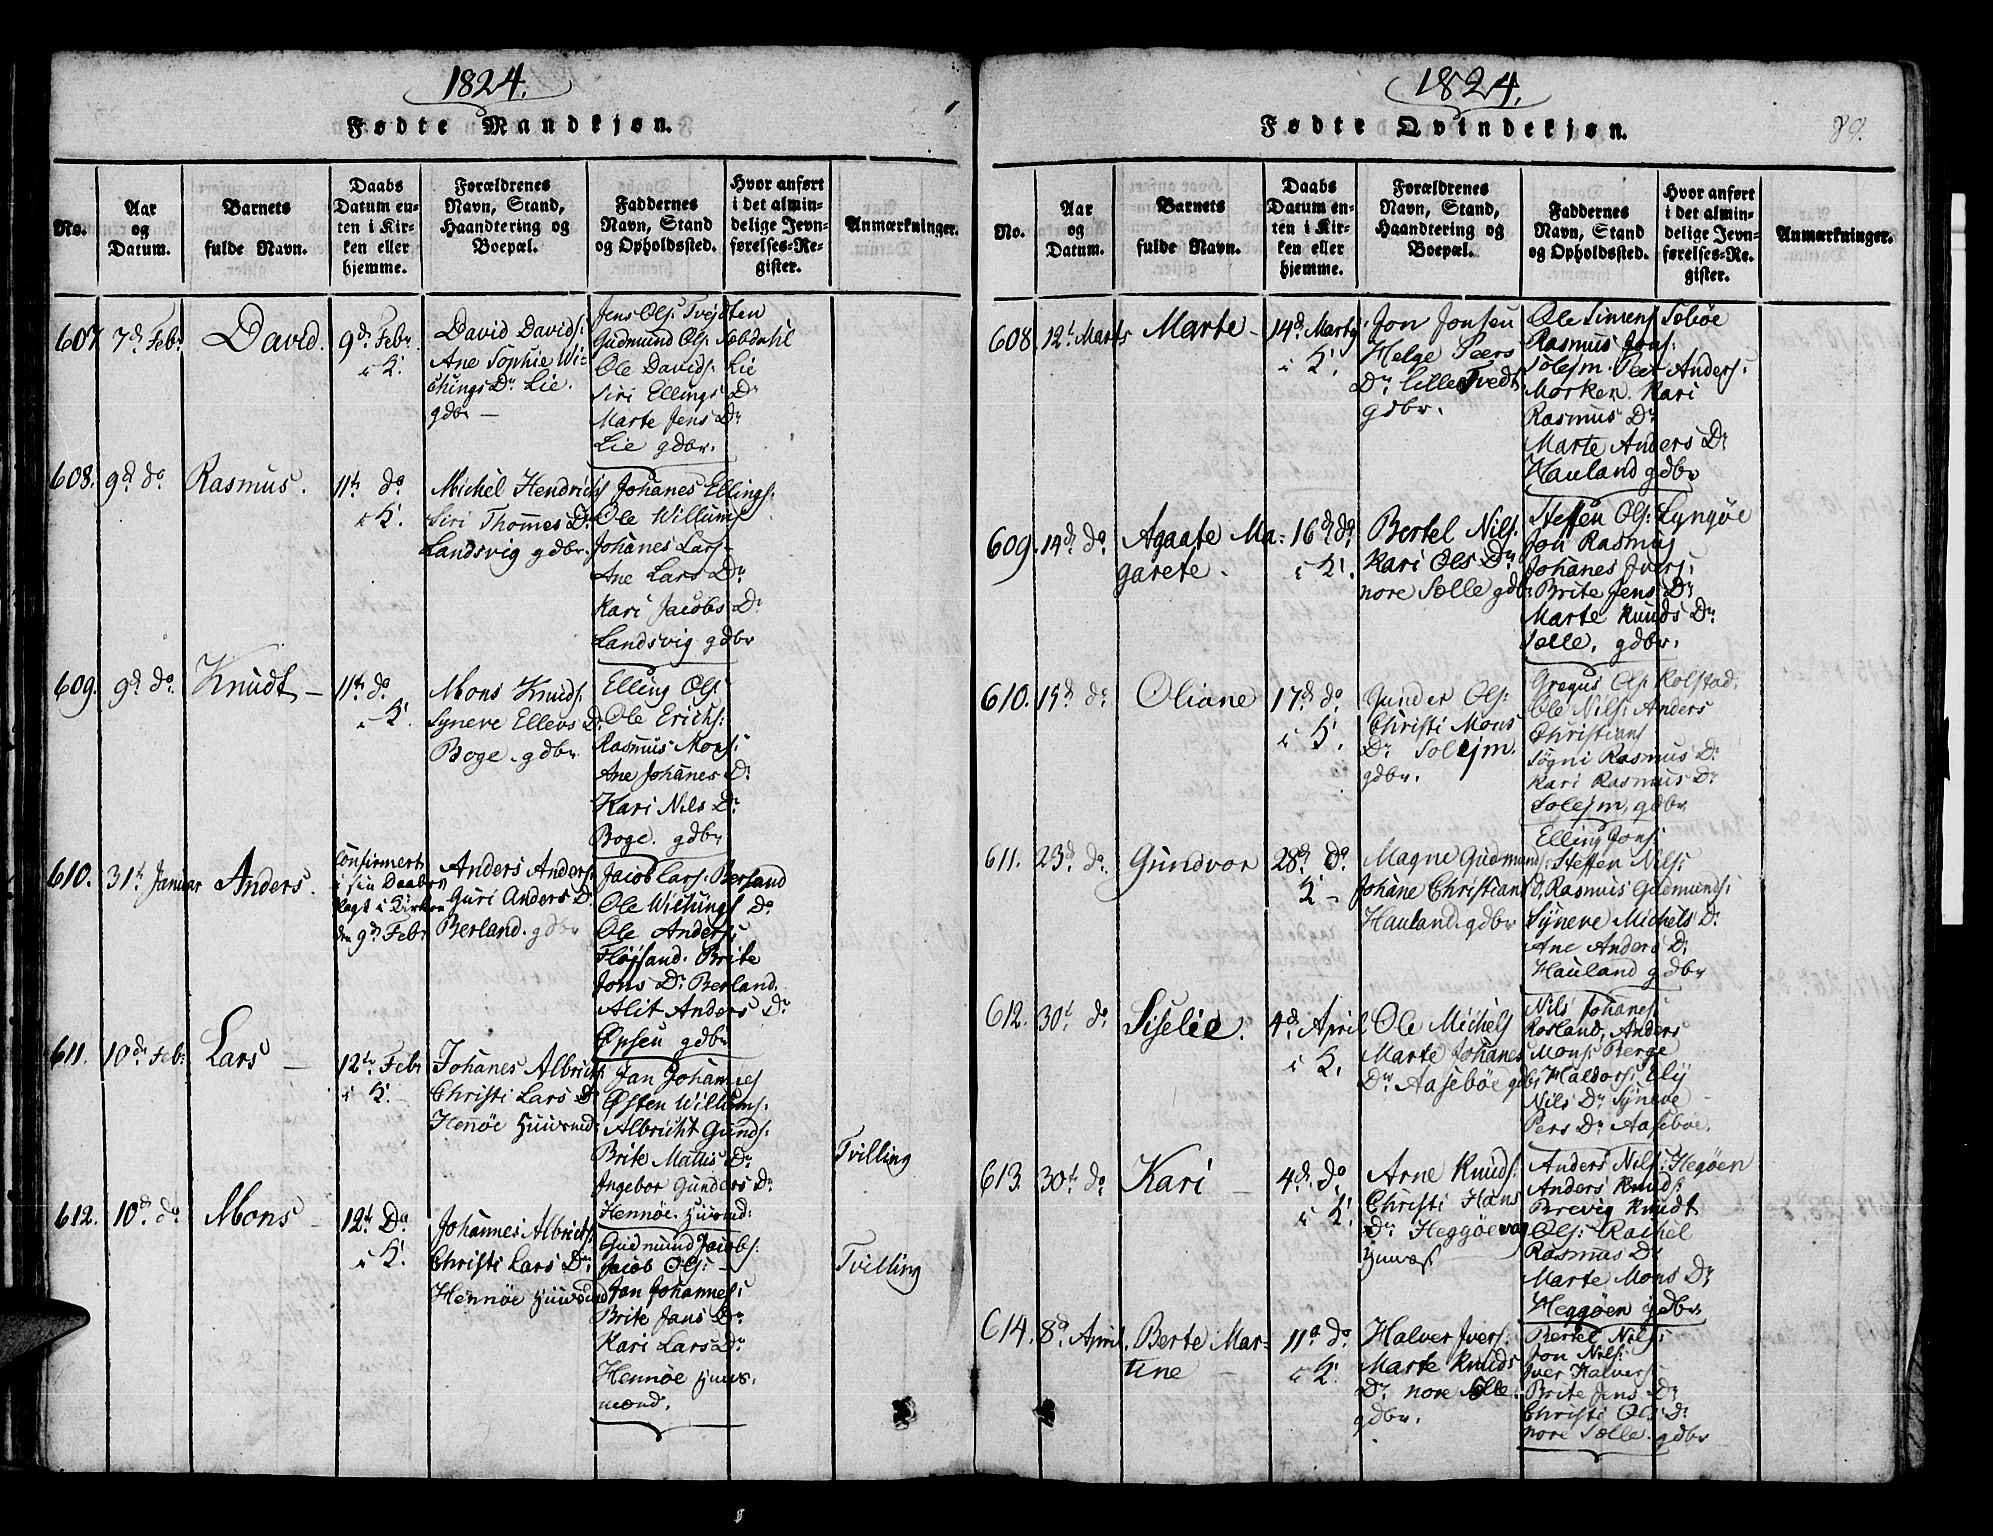 1824.
Fødte Mandkjøn.
No.
Aar
og
Datum.
Barnets
fulde Navn.
Daabs
Datum en-
ten i Kir-
ken eller
hjemme.
Forældrenes
Navn, Stand,
Haandtering og
Boepæl.
Faddernes
Navn, Stand
og Opholdssted.
Hvor anført
i det almin-
delige Jevn-
førelses-Re-
gister.
Anmærkninger.
607 7d Feb:
David.
9d Febr.
i K:
David Davids:
Ane Sophie Wi-
chings Dr Lie.
gdbr —
Jens Ols: Tvejten
Gudmund Ols: Aebdahl
Ole Davids: Lie
Siri Ellings Dr
Marte Jens Dr
Lie gdbr.
608. 9d do
Rasmus.
11te do
i K:
Michel Hendrichs
Siri Thomes Dr
Landsvig gdbr.
Johanes Ellings:
Ole Willums
Johanes Lars-
Ane Lars Dr
Kari Jacobs Dr
Landsvig gdbr
609. 9d do
Knudt —
11te do
i K:
Mons Knuds:
Syneve Ellevs D.
Boge. gdbr
Elling Ols:
Ole Erichs:
Rasmus Mons:
Ane Johanes Dr
Kari Nils Dr
Boge. gdbr
610. 31te Januar
Anders.
Confirmert
i sin Daab
lagt i Kirken
den 9d Febr
Anders Anders:
Guri Anders Dr
Berland. gdbr
Jacob Lars: Berland
Ole Do
Ole Anders:
Fløjsand. Brite
Jons Dr Berland.
Alit Anders Dr
Opseu gdbr
611. 10de Feb:
Lars —
12te Febr
i K:
Johanes Albrichs:
Christi Lars Dr
Hennøe Huusmd:
Jan Johannes
Østen Willums:
Albricht Gunds:
Brite Mattis Dr
Ingebor Gunders Dr
Hennøe. Huusmd:
Tvilling
612. 10d do
Mons —
12te Do
i K:
Johannes Albrichs:
Christi Lars Dr
Hennøe Huusmd
Gudmund Jacobs:
Jacob Ols: —
Jan Johannes:
Brite Jans Dr
Kari Lars Dr
Hennøe Huus-
mænd.
Tvilling
1824.
Fødte Qvindekjøn.
89.
No.
Aar
og
Datum.
Barnets
fulde Navn.
Daabs
Datum en-
ten i Kir-
ken eller
hjemme.
Forældrenes
Navn, Stand,
Haandtering og
Boepæl.
Faddernes
Navn, Stand
og Opholdssted.
Hvor anført
i det almin-
delige Jevn-
førelses-Re-
gister.
Anmærkninger.
608. 12te Marts
Marte —
14d Marts
i K:
Jon Jonsen
Helge Peers
Dr Lille Tvedt
gdbr.
Ole Simens Sebøe
Rasmus Jons:
Solejm. Peer Anders:
Morken. Kari
Rasmus Dr
Marte Anders Dr
Hauland gdbr
609. 14d do
Agaate Ma-
garete.
16d do
i K:
Bertel Nils:
Kari Ols Dr
nore Sælle gdbr
Steffen Ols: Lyngøe
Jon Rasmus
Johanes Ivers:
Brite Jens Dr
Marte Knuds Dr
Sælle. gdbr.
610. 15d do
Oliane
17d do
i K:
Gunder Ols:
Christi Mons
Dr Solejm.
gdbr.
Gregus Ols Kolstad.
Ole Nils: Anders
Christians
Søgni Rasmus Dr
Kari Rasmus Dr
Solejm, gdbr
611. 23d do
Gundvor
28d do
K —
Magne Gudmunds:
Johane Christians D.
Hauland. gdbr
Elling Jons:
Steffen Nils:
Rasmus Gudmunds:
Syneve Michels Dr
Ane Anders Dr
Hauland gdbr
612. 30te do
Siselie.
4d April
i K.
Ole Michels
Marte Johanes
Dr Aasebøe gdbr
Nils Johanes:
Rosland, Anders
Mons: Berge
Haldors: Elij
Nils Dr Syneve
Pers Dr Aasebøe.
613. 30te do
Kari —
4d do
i K:
Arne Knuds:
Christi Hans
Dr Heggøe
Anders Nils: Hegøen
Anders Knuds
Brevig Knudt
Ols: Rachel
Rasmus Dr
Marte Mons Dr
Heggøen gdbr
614. 8d April.
Berte Mar-
tine —
11d do
i K:
Halver Ivers:
Marte Knuds
Dr nore Sælle.
gdbr.
Bertel Nils:
Jon Nils:
Iver Halvers:
Brite Jens Dr
Christi Ols Dr
nore Sælle. gdbr